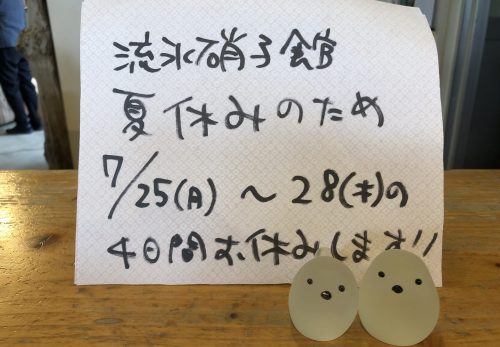 流氷硝子館
夏休みのため
7/25(月)～28(木)の
4日間お休みします!!